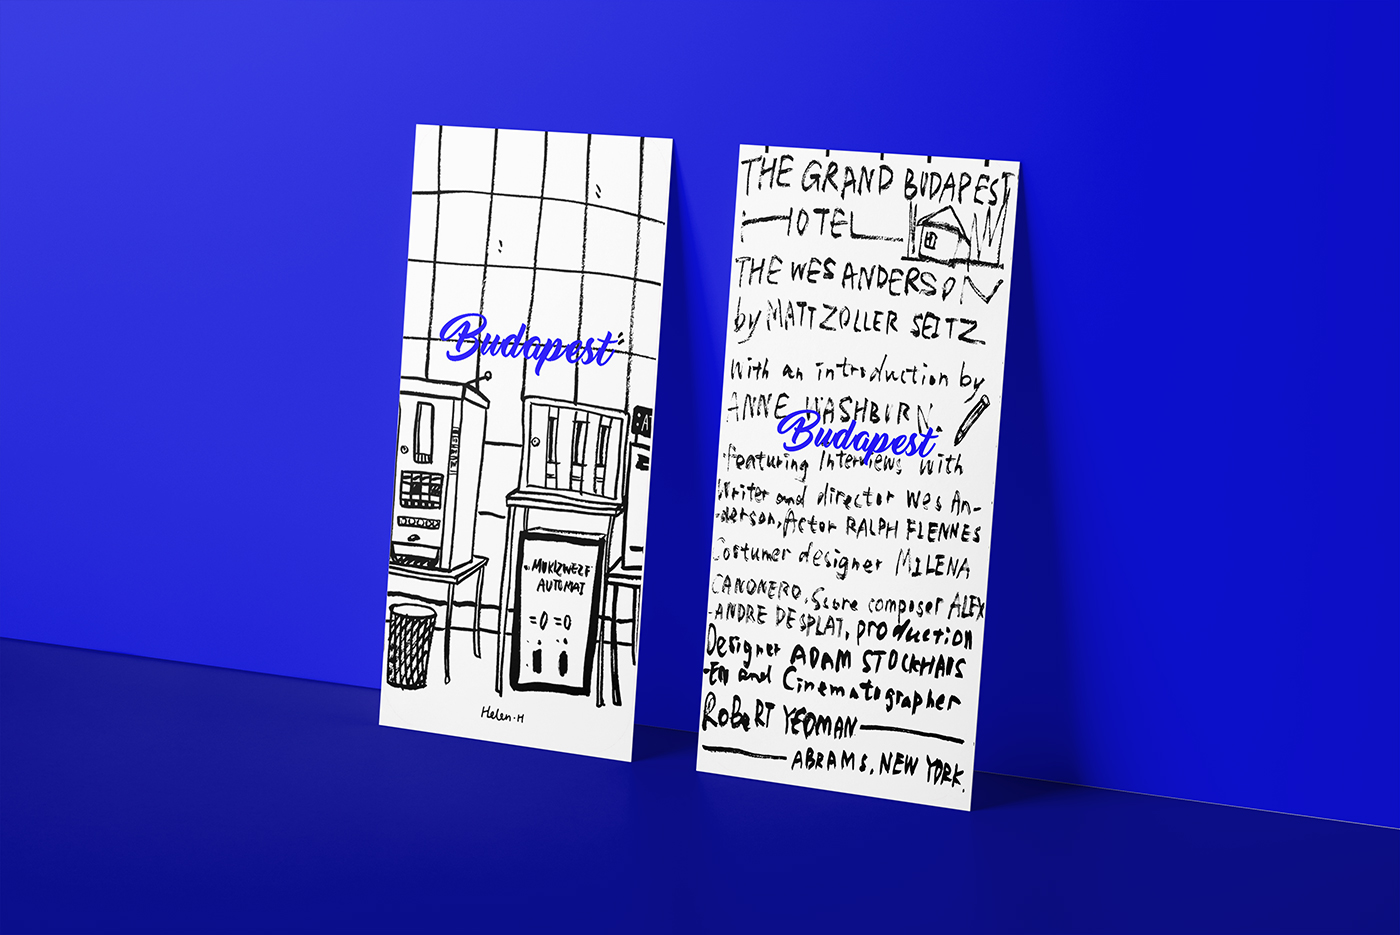 Budapest
MUKIZWEZF
AUTOMAT
=0 =0
Helen.H
THE GRAND BUDAPEST
HOTEL
THE WES ANDERSON
by MATT ZOLLER SEITZ
With an introduction by
ANNE WASHBURN.
Budapest
Featuring Interviews with
Writer and director Wes An-
-derson, Actor RALPH FIENNES
Costumer designer MILENA
CANONERO, Score composer ALEX
-ANDRE DESPLAT, production
Designer ADAM STOCKHAUS
-EN and Cinematographer
ROBERT YEOMAN
ABRAMS, NEW YORK.